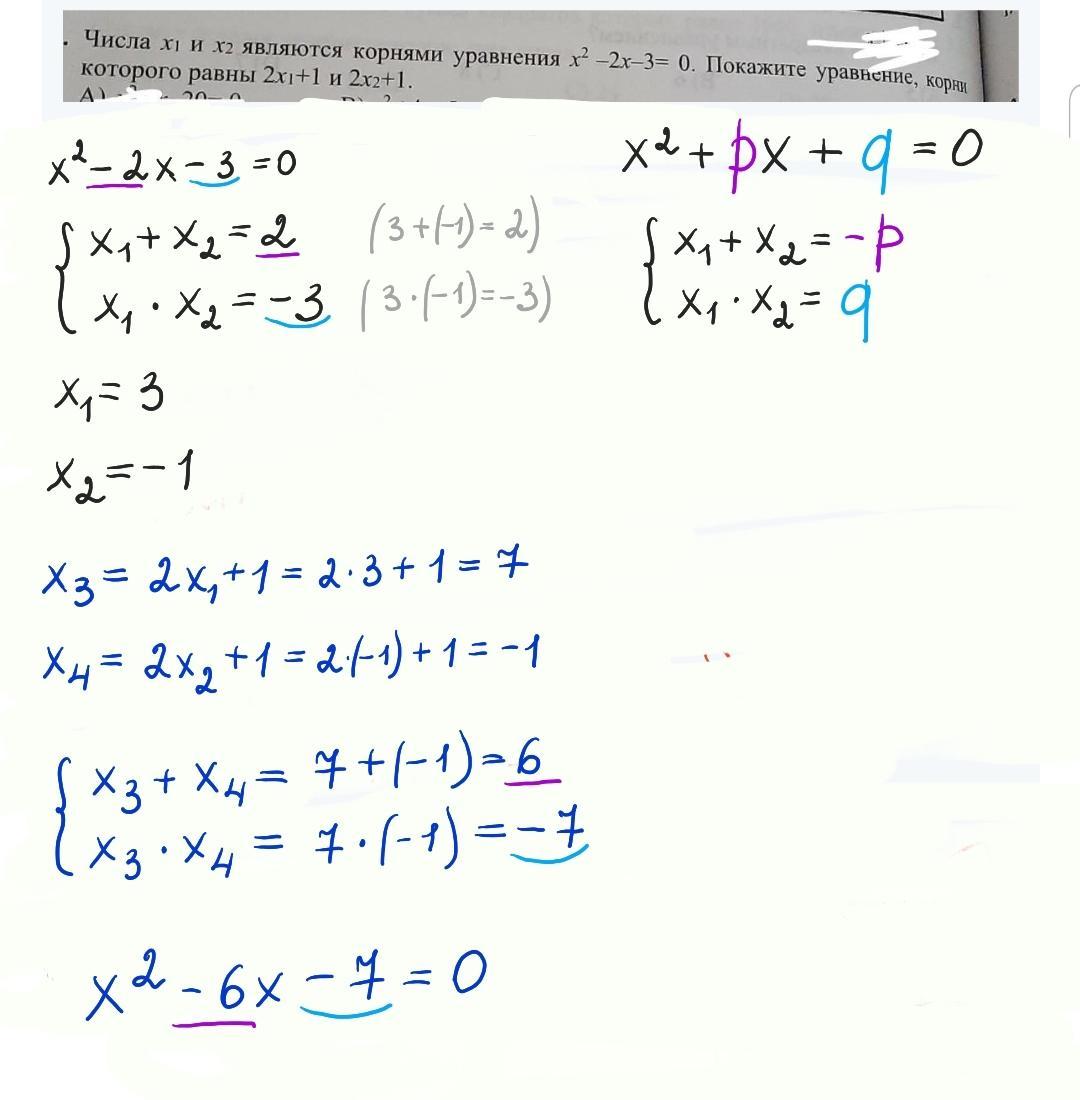 Числа x₁ и x₂ являются корнями уравнения x² –2x–3= 0. Покажите уравнение, корни
которого равны 2x₁+1 и 2x₂+1.
x² - 2x - 3 = 0
x₁ + x₂ = 2 (3 + (-1) = 2)
x₁ · x₂ = -3 (3 · (-1) = -3)
x² + px + q = 0
x₁ + x₂ = -p
x₁ · x₂ = q
x₁ = 3
x₂ = -1
x₃ = 2x₁ + 1 = 2 · 3 + 1 = 7
x₄ = 2x₂ + 1 = 2·(-1) + 1 = -1
x₃ + x₄ = 7 + (-1) = 6
x₃ · x₄ = 7 · (-1) = -7
x² - 6x - 7 = 0